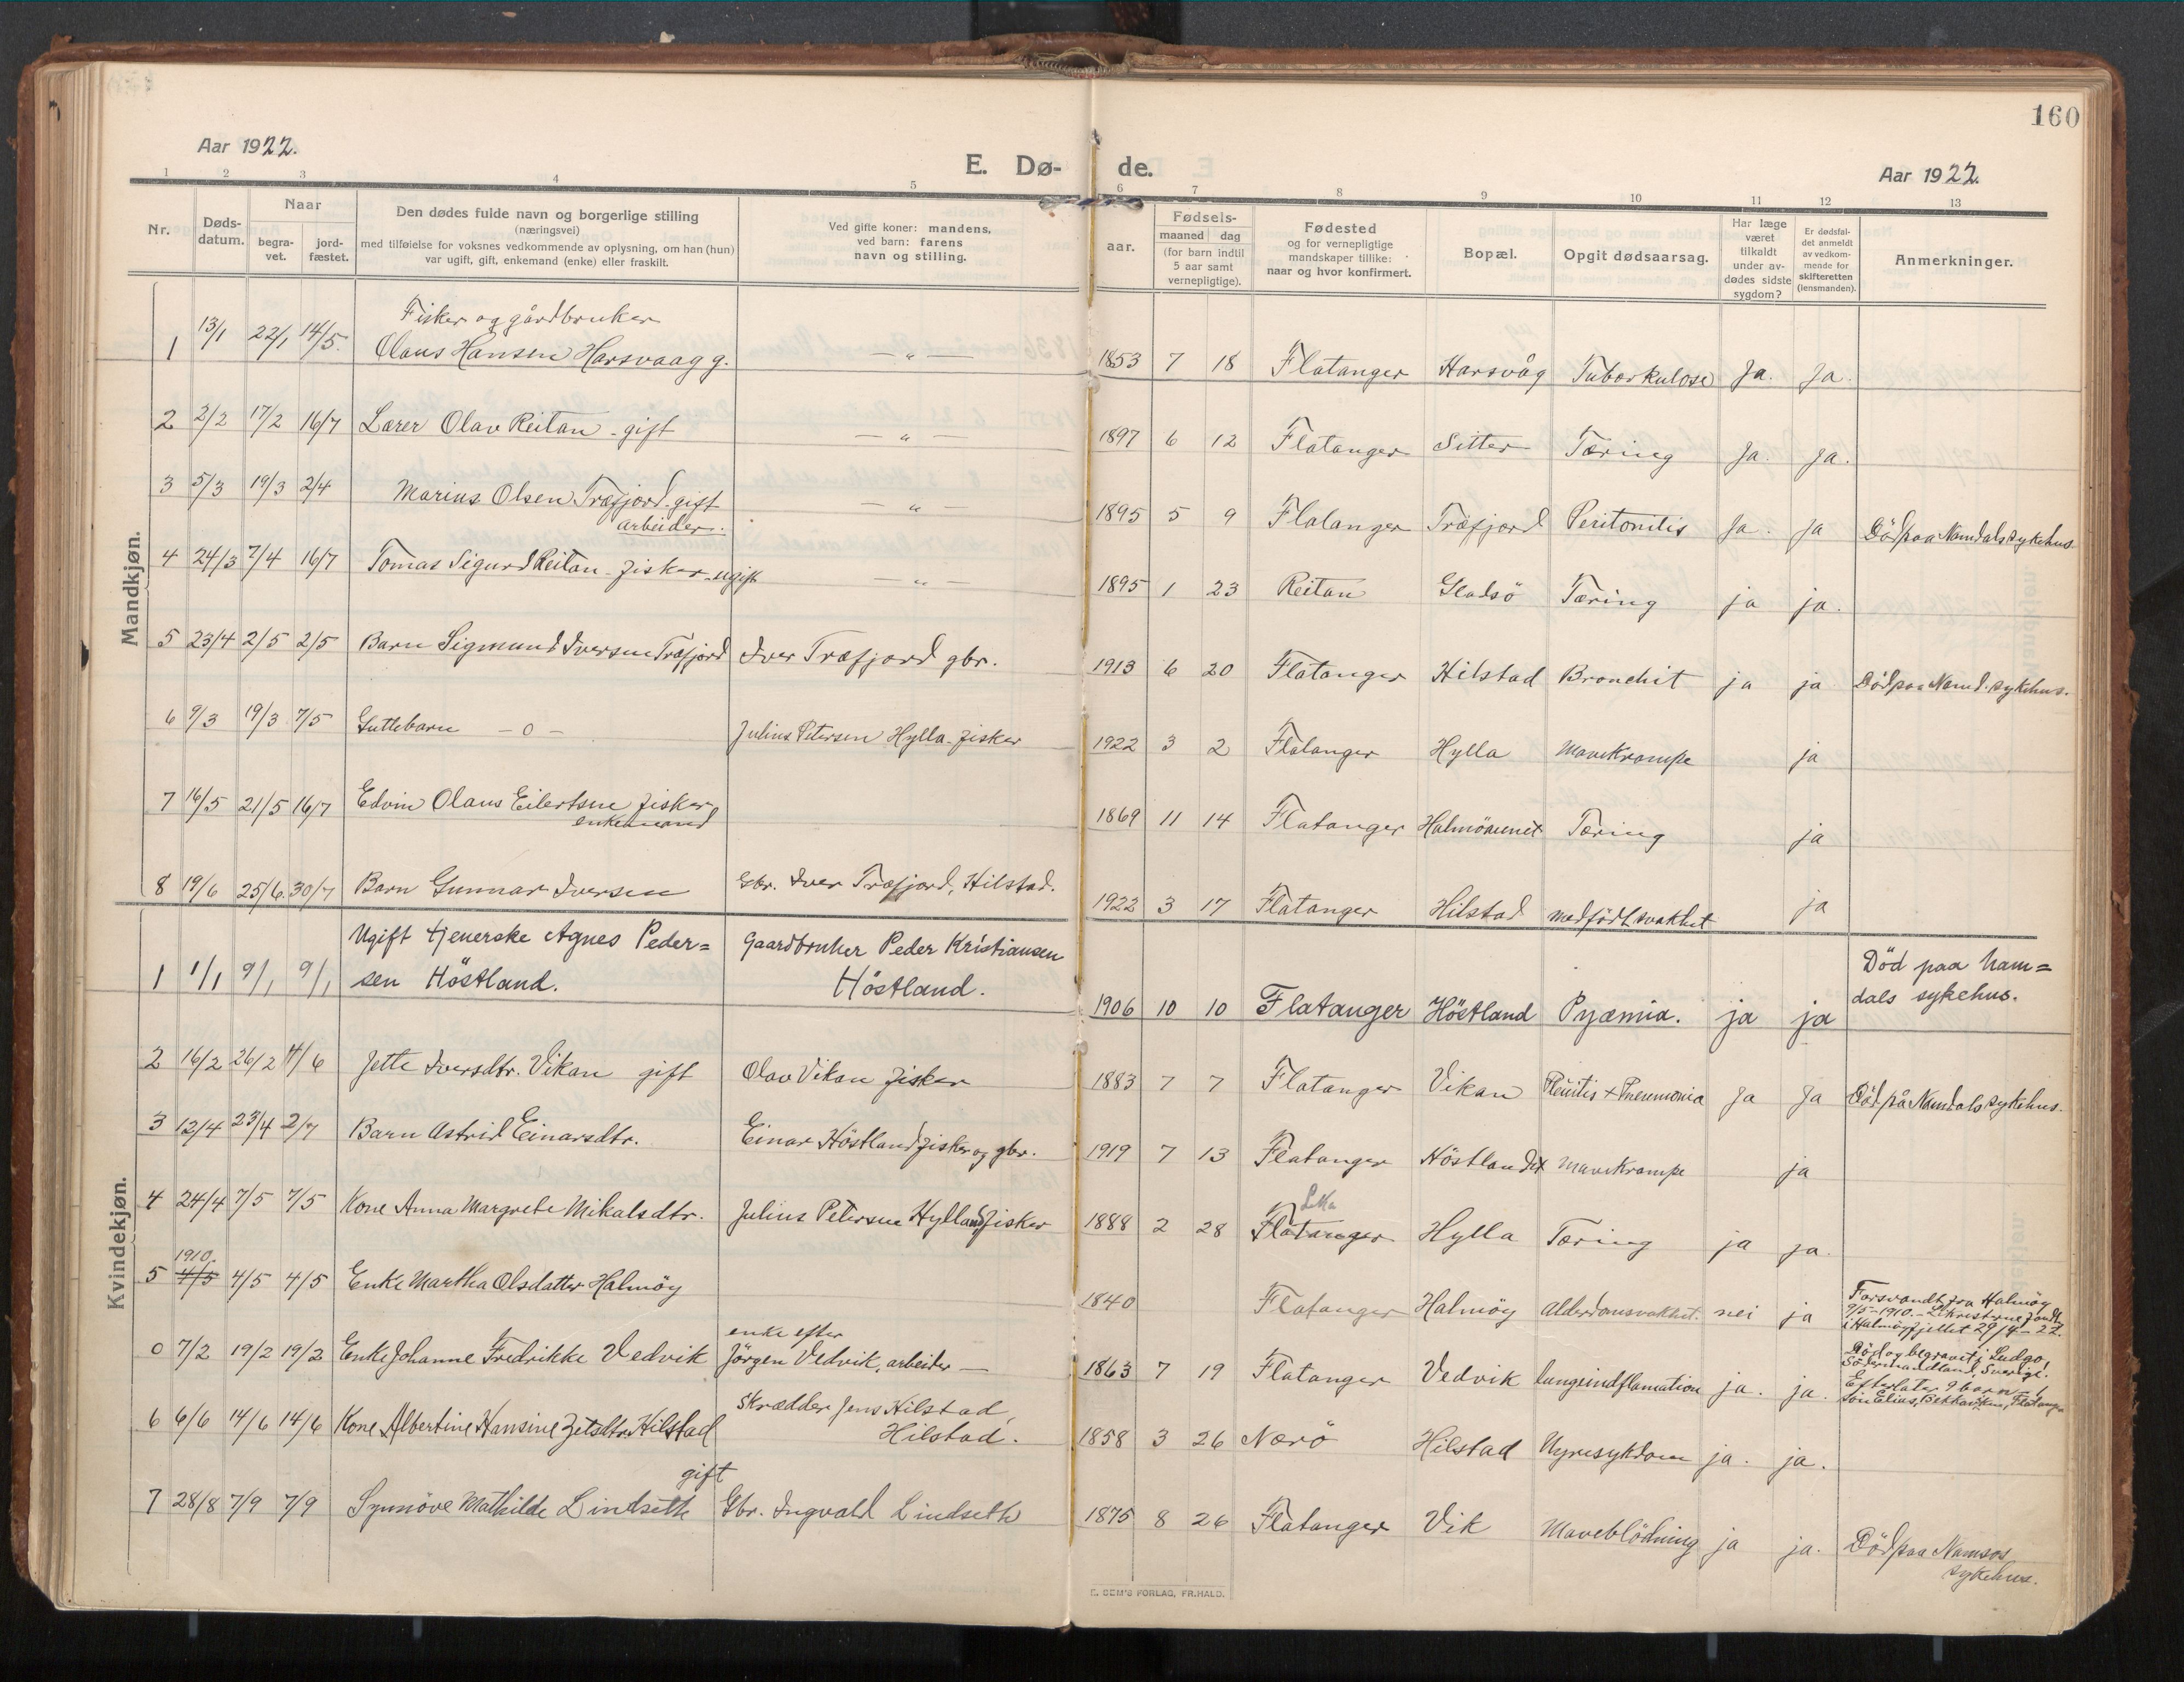 160
Aar 1922.
E. Dø- de.
Aar 1922.
1 2 3 4 5 6 7 8 9 10 11 12 13
Nr.
Døds-
datum.
Naar
begra-
vet.
jord-
fæstet.
Den dødes fulde navn og borgerlige stilling
(næringsvei)
med tilføielse for voksnes vedkommende av oplysning, om han (hun)
var ugift, gift, enkemand (enke) eller fraskilt.
Ved gifte koner: mandens,
ved barn: farens
navn og stilling.
Fødsels-
aar.
maaned dag
(for barn indtil
5 aar samt
vernepligtige).
Fødested
og for vernepligtige
mandskaper tillike:
naar og hvor konfirmert.
Bopæl.
Opgit dødsaarsag.
Har læge
været
tilkaldt
under av-
dødes sidste
sygdom?
Er dødsfal-
det anmeldt
av vedkom-
mende for
skifteretten
(lensmanden).
Anmerkninger.
Mandkjøn.
Fisker og gårdbruker
1 13/1 22/1 14/5. Olaus Hansen Harsvaag g. — " — 1853 7 18 Flatanger Harsvåg Tuberkulose Ja. Ja.
2 2/2 17/2 16/7 Lærer Olav Reitan - gift — " — 1897 6 12 Flatanger Sitter Tæring Ja. Ja.
3 5/3 19/3 2/4 Marius Olsen Træfjord. gift — " — 1895 5 9 Flatanger Træfjord Peritonitis Ja. Ja Död paa Namdals sykehus.
arbeider.
4 24/3 7/4 16/7 Tomas Sigurd Reitan - fisker - ugift — " — 1895 1 23 Reitan Gladsö Tæring ja ja.
5 23/4 2/5 2/5 Barn Sigmund Iversen Træfjord Iver Træfjord gbr. 1913 6 20 Flatanger Hilstad Bronchit ja ja Död paa Namd. sykehus.
6 9/3 19/3 7/5 Guttebarn - 0 - Julius Petersen Hylla - fisker 1922 3 2 Flatanger Hylla Mavekrampe ja
7 16/5 21/5 16/7 Edvin Olaus Eilertsen fisker 1869 11 14 Flatanger Halmöaunet Tæring ja
enkemand
8 19/6 25/6. 30/7 Barn Gunnar Iversen Gbr. Iver Træfjord, Hilstad. 1922 3 17 Flatanger Hilstad medfödt svakhet ja
Kvindekjøn.
Ugift tjenerske Agnes Peder= Gaardbruker Peder Kristiansen Død paa Nam=
1 1/1 9/1 9/1 sen Höstland. Höstland. 1906 10 10 Flatanger Höstland Pyæmia. ja ja dals sykehus.
2 16/2 26/2 4/6 Jette Iversdtr. Vikan gift Olav Vikan fisker 1883 7 7 Flatanger Vikan Pleuritis + Pneumonia Ja Ja Död på Namdals sykehus.
3 12/4 23/4 2/7 Barn Astrid Einarsdtr. Einar Höstland fisker og gbr. 1919 7 13 Flatanger Höstlandet Mavekrampe ja
Leka
4 24/4 7/5 7/5 Kone Anna Margrete Mikalsdtr. Julius Petersen Hylland fisker 1888 2 28 Flatanger Hylla Tæring ja ja.
1910.
5 4/5 4/5 4/5 Enke Martha Olsdatter Halmöy 1840 Flatanger Halmöy Alderdomsvakhet. nei ja Forsvandt fra Halmöy
9/5-1910. - Likresterne fandt
i Halmöyfjellet 29/4-22.
enke efter
0 7/2 19/2 19/2 Enke Johanne Fredrikke Vedvik Jörgen Vedvik, arbeider — 1863 7 19 Flatanger Vedvik lungeindflamation ja. ja. Död og begravet i Ludgo,
Södermandland, Sverige.
Efterlater 9 barn
Sön Elias, Flatanger
Skrædder Jens Hilstad,
6 6/6 14/6 14/6 Kone Albertine Hansine Zetsdtr. Hilstad Hilstad. 1858 3 26 Nærö Hilstad Nyresykdom ja. ja.
gift
7 28/8 7/9 7/9 Synnöve Mathilde Lindseth Gbr. Ingvald Lindseth 1875 8 26 Flatanger Vik Maveblödning ja ja. Död paa Namsos
sykehus.
E. SEM'S FORLAG, FR.HALD.